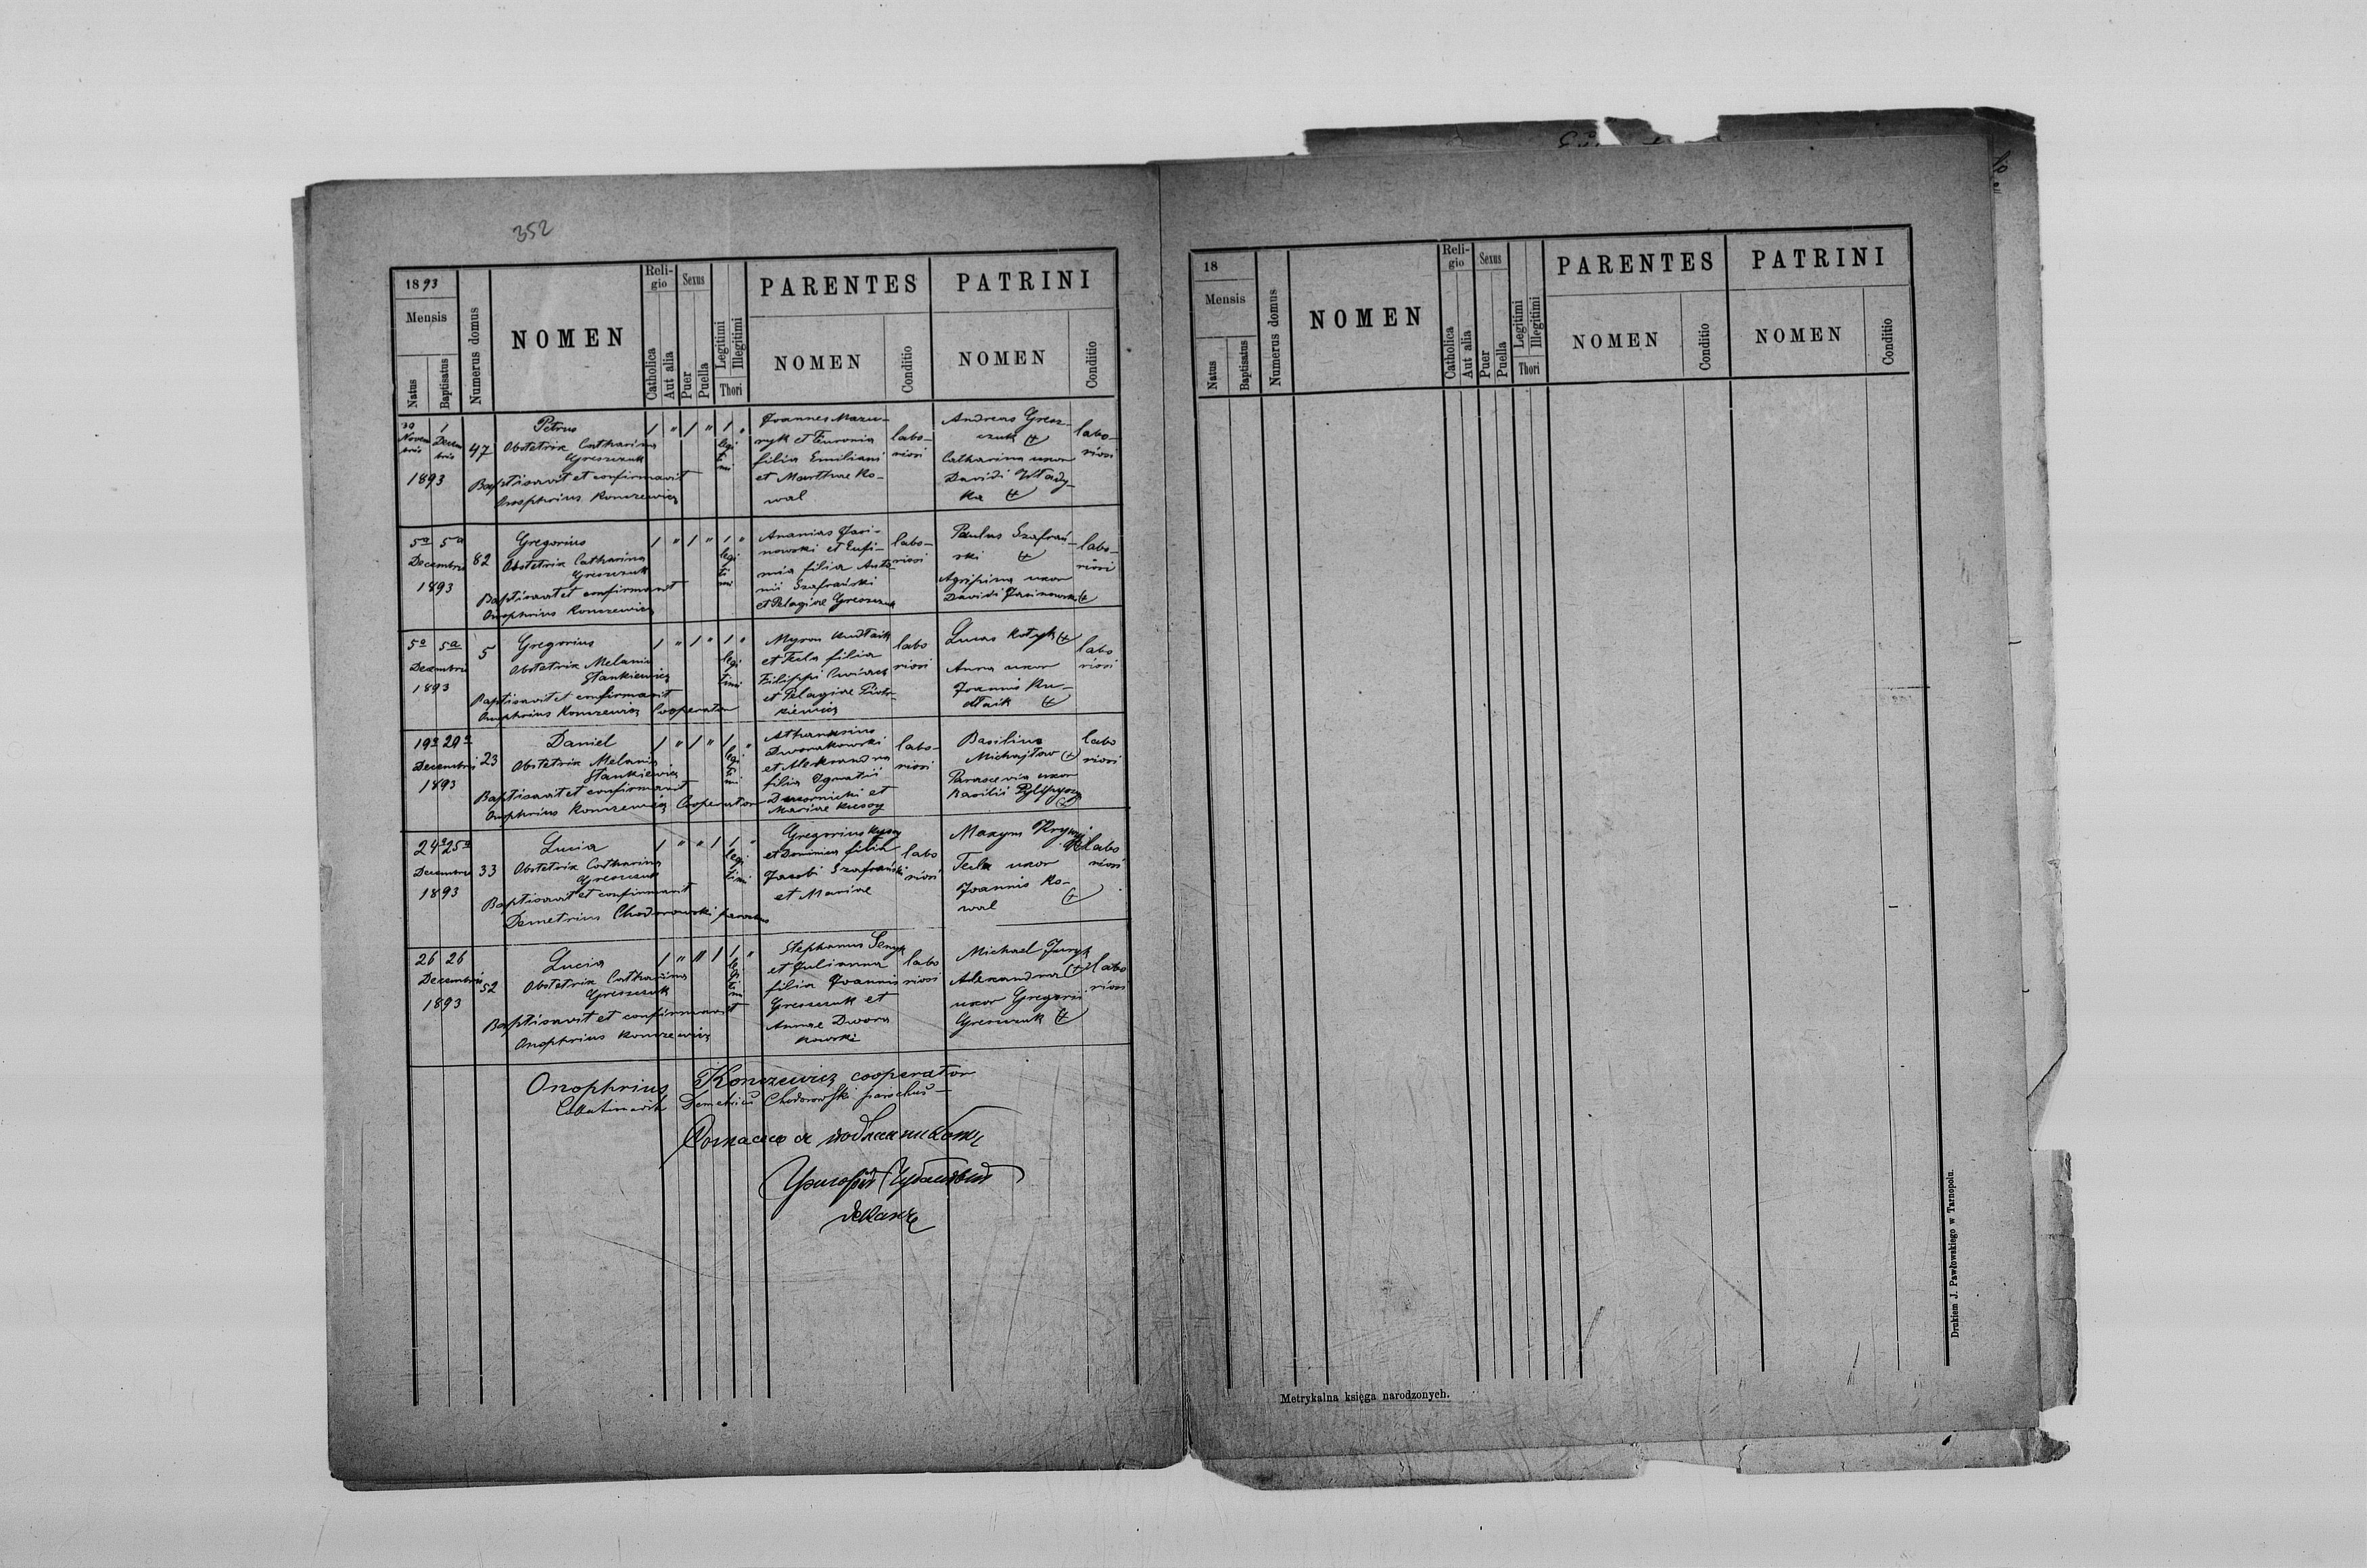 352
1893
Mensis
Natus
Baptisatus
Numerus domus
NOMEN
Reli-
gio
Catholica
Aut alia
Sexus
Puer
Puella
Legitimi
Illegitimi
Thori
PARENTES
NOMEN
Conditio
PATRINI
NOMEN
Conditio
30 Novem
bris
1 Decem
bris
1893
47
Petrus
Obstetrix Catharina
Greszczuk
Baptisavit et confirmavit
Onophrius Konczewicz
1 " 1 " 1 "
legi
ti
mi
Joannes Mazu-
ryk et Euronia
filia Emiliani
et Marthae Ko-
wal
labo-
riosi
Andreas Gresz-
czuk
Catharina uxor
Davidi Włady-
ka
labo-
riosi
5a 5a
Decembris
1893
82
Gregorius
Obstetrix Catharina
Greszczuk
Baptisavit et confirmavit
Onophrius Konczewicz
1 " 1 " 1 "
legi
ti
mi
Ananias Jasi-
nowski et Eufi-
mia filia Anto
nii Szafrański
et Pelagiae Greszczuk
labo-
riosi
Paulus Szafrań-
ski
Agripina uxor
Davidi Jasinowski
labo-
riosi
5a 5a
Decembris
1893
5
Gregorius
Obstetrix Melania
Stankiewicz
Baptisavit et confirmavit
Onophrius Konczewicz Cooperator
1 " 1 " 1 "
legi
timi
Myron Kudłaik
et Tecla filia
Filippi
et Pelagiae
kiewicz
labo
riosi
Lucas Kotyk
Anna uxor
Joannis Ku-
dłaik
labo
riosi
19a 20a
Decembris
1893
23
Daniel
Obstetrix Melania
Stankiewicz
Baptisavit et confirmavit
Onophrius Konczewicz Cooperator
1 " 1 " 1 "
legi
ti
mi
Athanasius
Dworakowski
et Alexandra
filia Ignatii
Dwornicki et
Mariae
labo-
riosi
Basilius
Michajłow
Parascevia uxor
Basilii Pylypyszyn
labo
riosi
24a 25a
Decembris
1893
33
Lucia
Obstetrix Catharina
Greszczuk
Baptisavit et confirmavit
Demetrius Chodorowski parochus
1 " " 1 1 "
legi
timi
Gregorius
et Dominica filia
Jacobi Szafrański
et Mariae
labo
riosi
Maxym
Tecla uxor
Joannis Ko-
wal
labo
riosi
26 26
Decembris
1893
52
Lucia
Obstetrix Catharina
Greszczuk
Baptisavit et confirmavit
Onophrius Konczewicz
1 " " 1 1 "
legi
ti
mi
Stephanus Senyk
et Julianna
filia Joannis
Greszczuk et
Annae Dwora
kowski
labo
riosi
Michael Juryk
Alexandra
uxor Gregorii
Greszczuk
labo
riosi
Onophrius Konczewicz cooperator
Demetrius Chodorowski parochus
деканъ
18
Mensis
Natus
Baptisatus
Numerus domus
NOMEN
Reli-
gio
Catholica
Aut alia
Sexus
Puer
Puella
Legitimi
Illegitimi
Thori
PARENTES
NOMEN
Conditio
PATRINI
NOMEN
Conditio
Metrykalna księga narodzonych.
Drukiem J. Pawłowskiego w Tarnopolu.